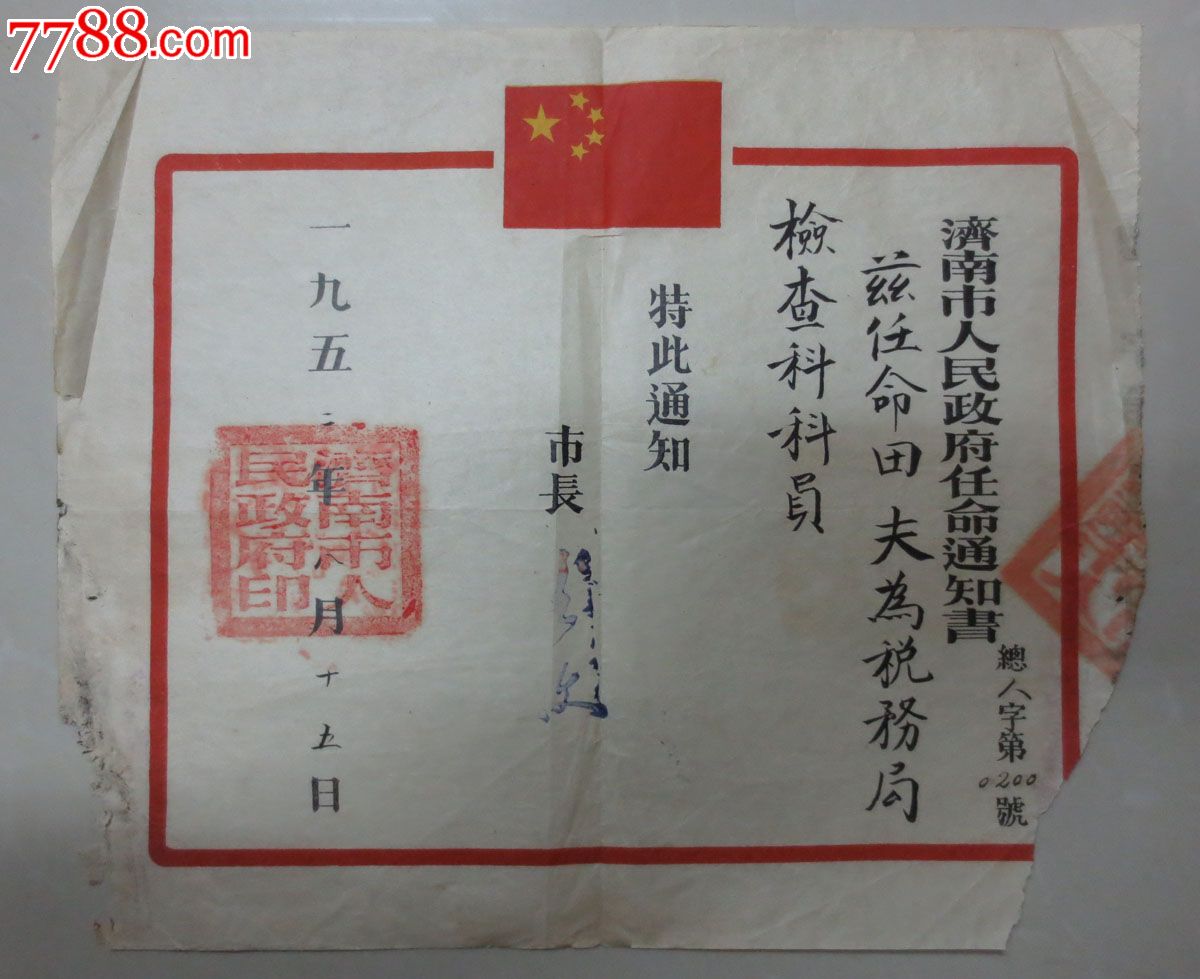 7788.com
濟南市人民政府任命通知書
總人字第0200號
茲任命田夫為税務局
檢查科科員
特此通知
市長
一九五二年八月十五日
濟南市人
民政府印